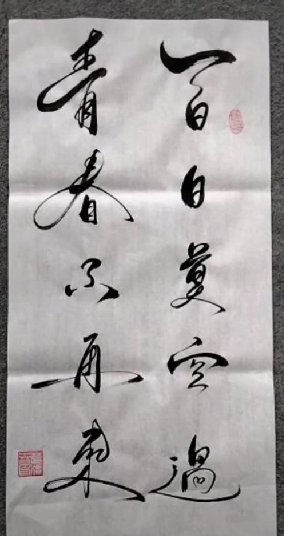 百日莫空過
青春不再來